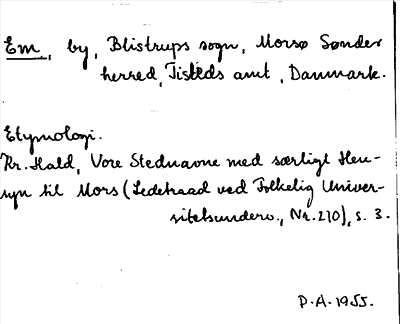 Em, by, Blistrups sogn, Morsø Sønder
herred, Tisteds amt, Danmark.
Etymologi.
Kr. Hald, Vore Stednavne med særligt Hen-
syn til Mors (Ledetraad ved Folkelig Univer-
sitetsunderv., Nr. 210), s. 3.
P.A. 1955.